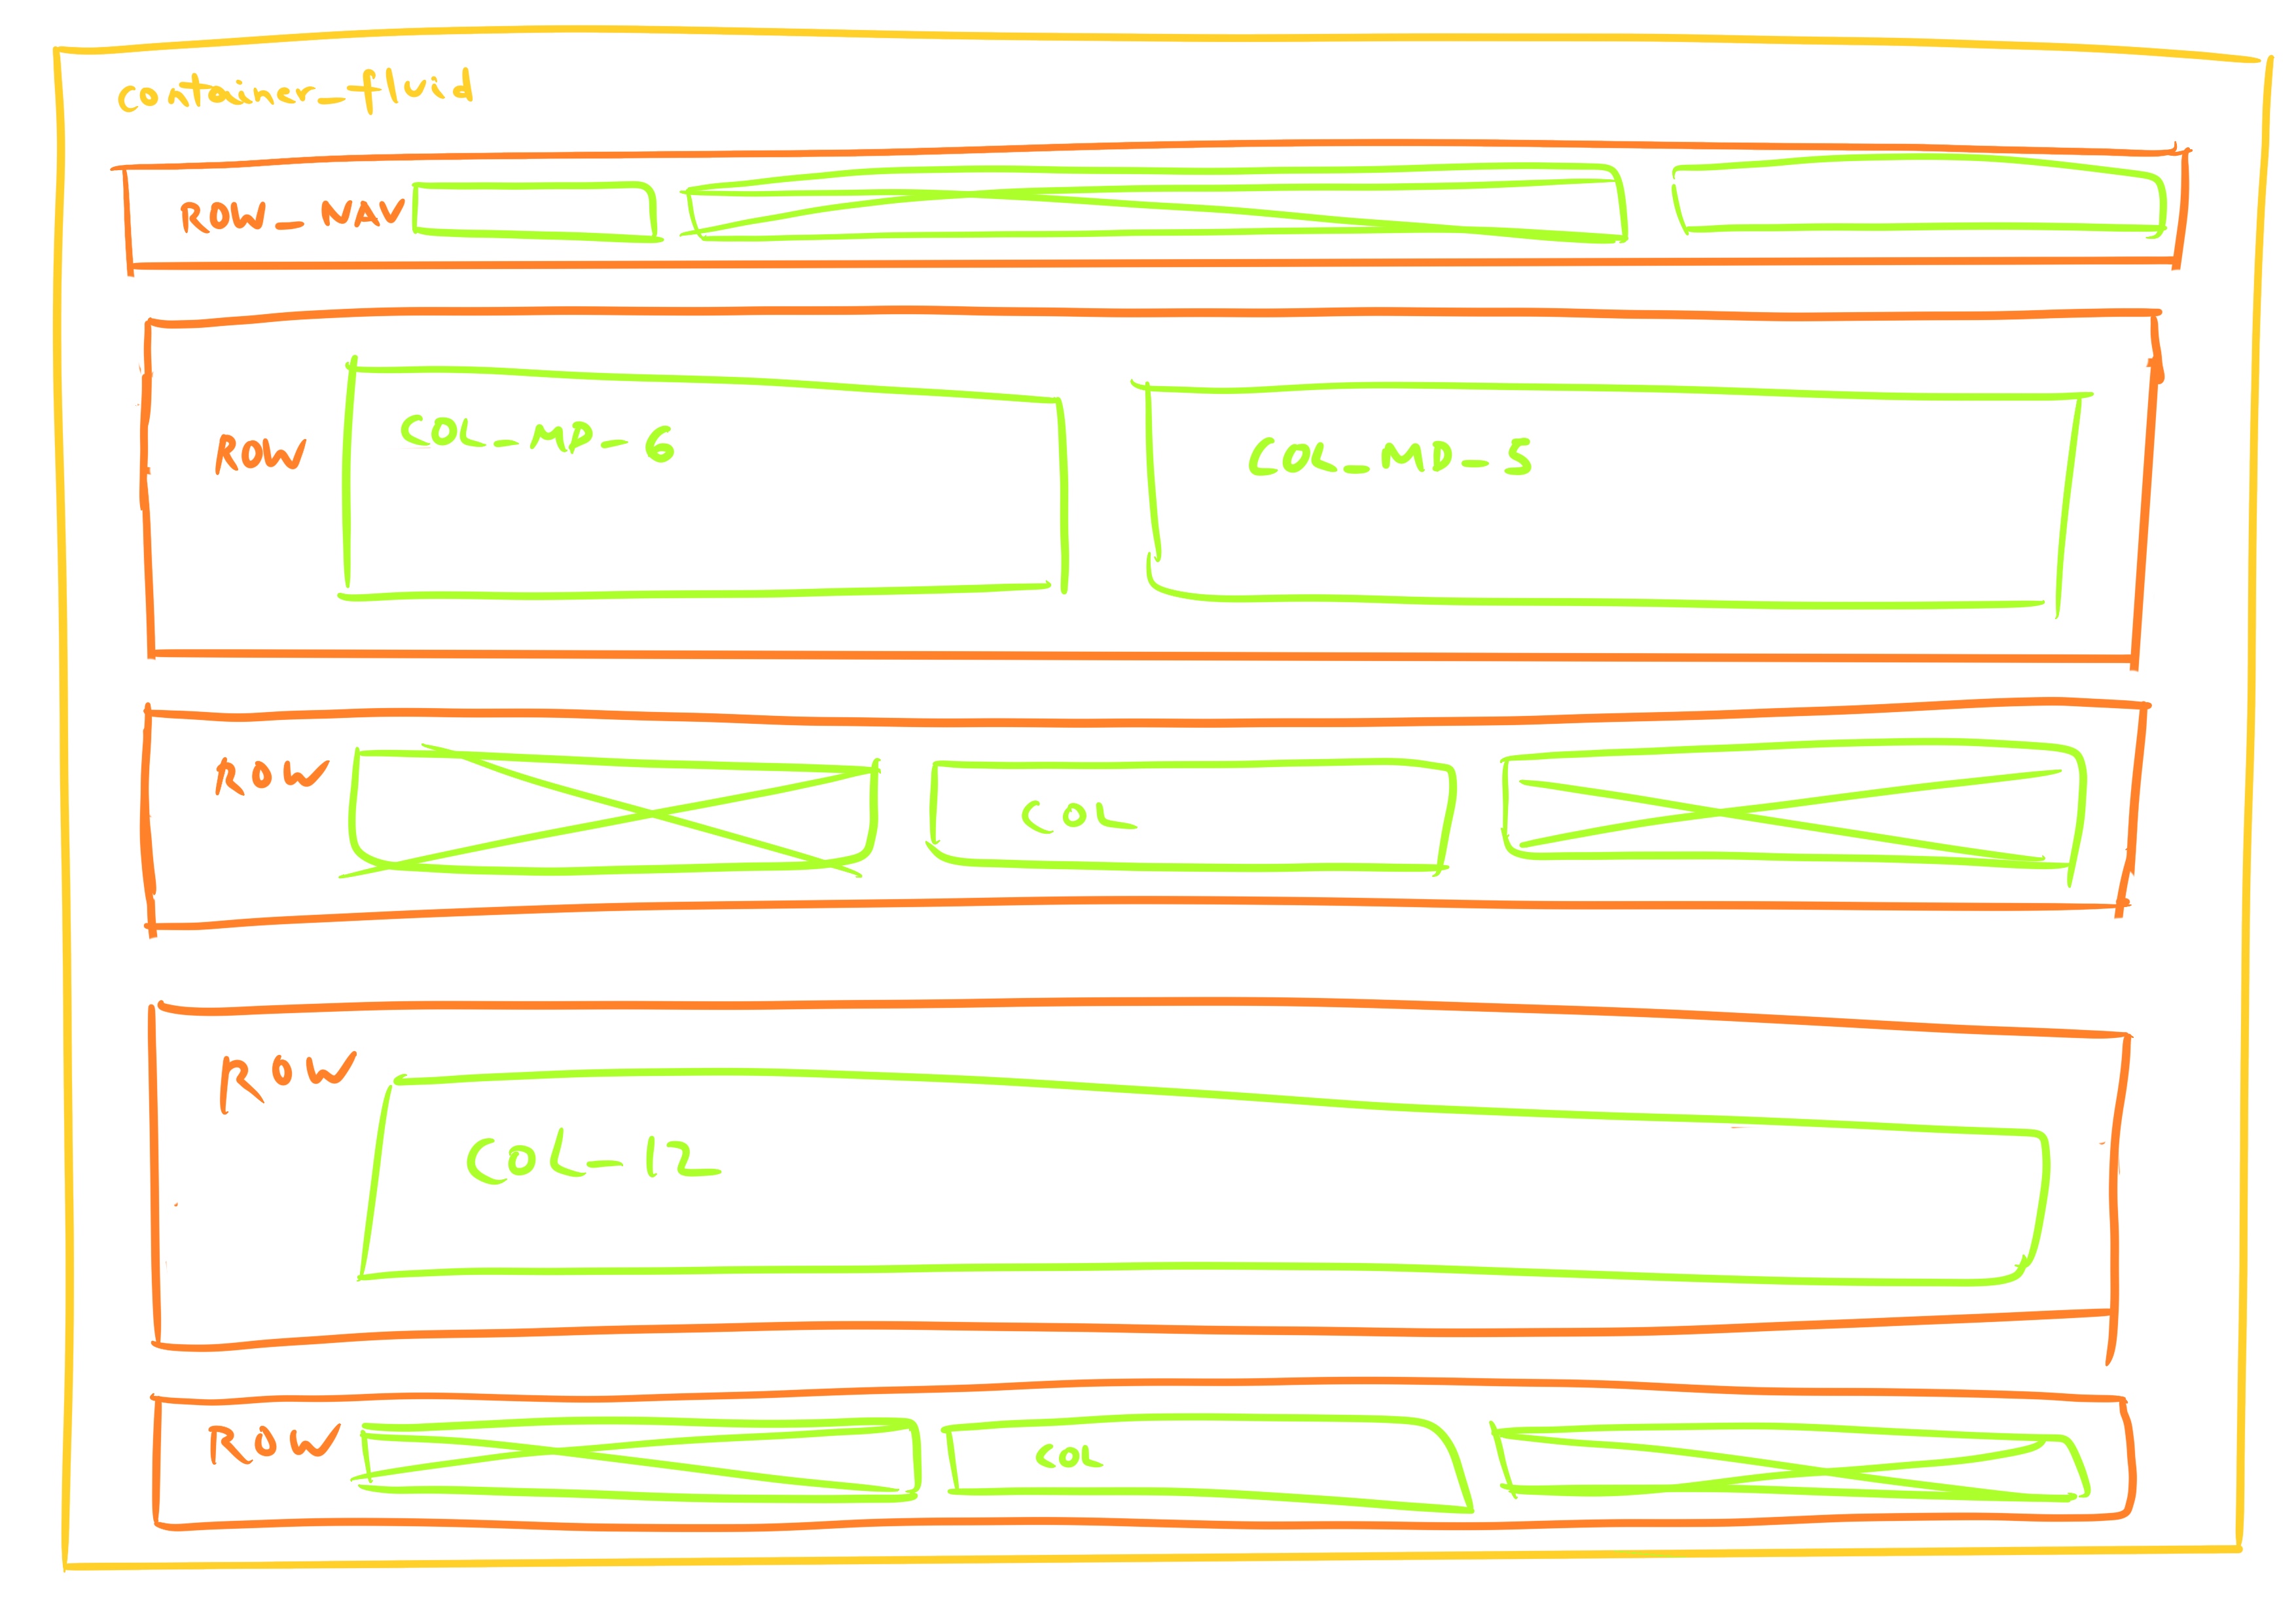 container_fluid
ROW_NAV
ROW
COL_MD_6
COL_MD_5
ROW
COL
ROW
COL_12
ROW
COL